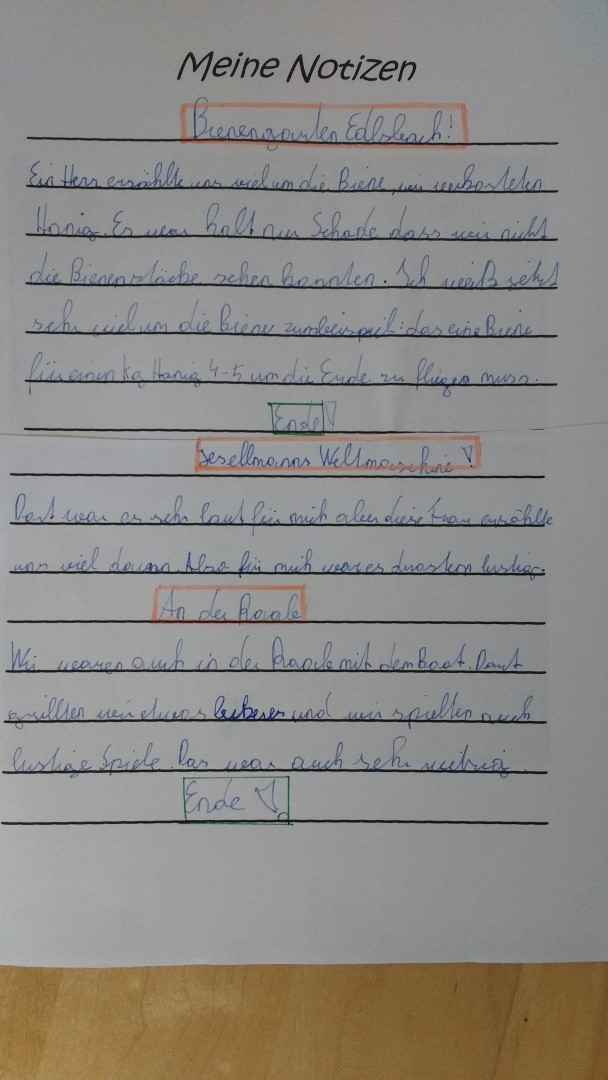 Meine Notizen
Bienengarten Edlsbach!
Ein Herr erzählte uns viel um die Biene, wir verkosteten
Honig. Es war halt nur Schade dass wir nicht
die Bienenstöcke sehen konnten. Ich weiß jetzt
sehr viel um die Biene zumbeispiel: das eine Biene
für einen kg Honig 4-5 um die Erde zu fliegen muss.
Ende!
Gsellmanns Weltmaschine!
Dort war es sehr laut für mich aber diese Frau erzählte
uns viel davon. Also für mich war es trostem lustig.
An der Raale
Wir waren auch in der Raale mit dem Boot. Dort
grillten wir etwas leckeres und wir spielten auch
lustige Spiele. Das war auch sehr witzig.
Ende!